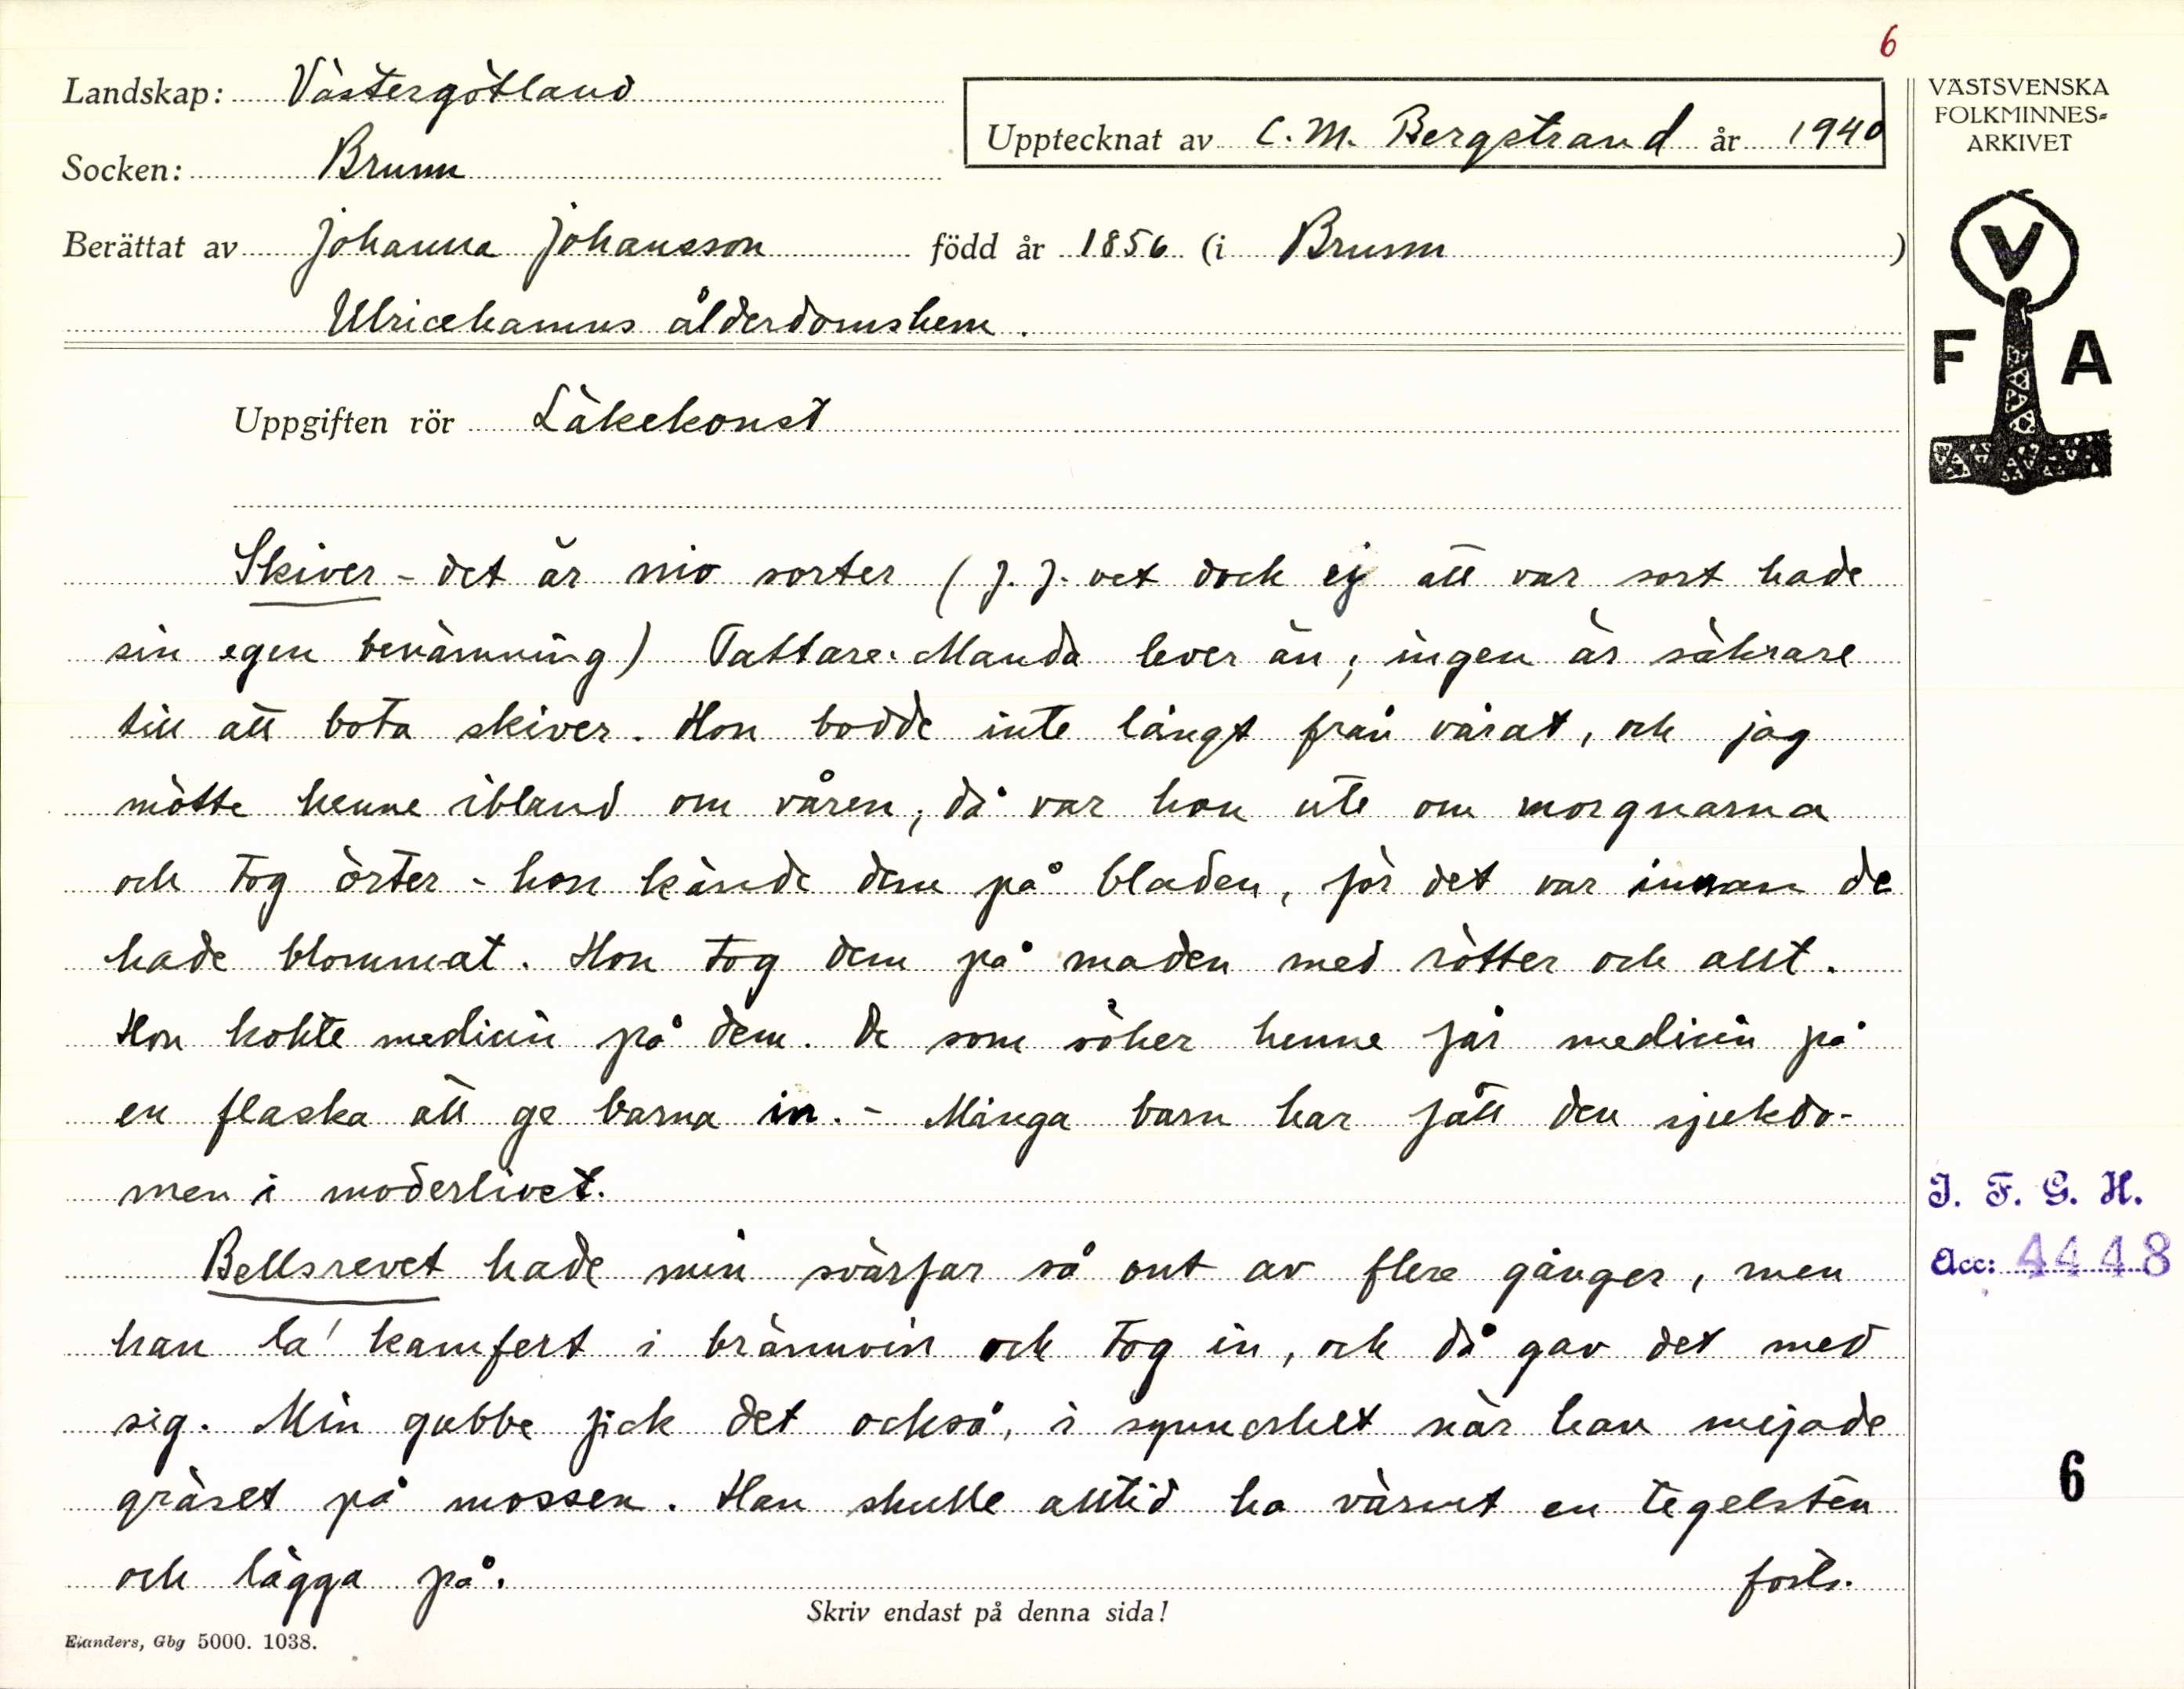 6
Landskap: Västergötland
VÄSTSVENSKA
FOLKMINNES=
ARKIVET
Upptecknat av C. M. Bergstrand år 1940
Socken: Brunn
Berättat av Johanna Johansson född år 1856 (i Brunn )
Ulricehamns ålderdomshem.
V
F A
Uppgiften rör Läkekonst
Skiver - det är nio sorter (J. J. vet dock ej att var sort hade
sin egen benämning) Tattare-Manda lever än; ingen är säkrare
till att bota skiver. Hon bodde inte långt från vårat, och jag
mötte henne ibland om våren; då var hon ute om morgnarna
och tog örter - hon kände dem på bladen, för det var innan de
hade blommat. Hon tog dem på maden med rötter och allt.
Hon kokte medicin på dem. De som söker henne får medicin på
en flaska att ge barna in. - Många barn har fått den sjukdo-
men i moderlivet.
I. F. G. H.
Bellsrevet hade min svärfar så ont av flere gånger, men
Acc: 4448
han la' kamfert i brännvin och tog in, och då gav det med
sig. Min gubbe fick det också, i synnerhet när han mejade
gräset på mossen. Han skulle alltid ha värmt en tegelsten
6
och lägga på. forts.
Skriv endast på denna sida!
Elanders, Gbg 5000. 1038.